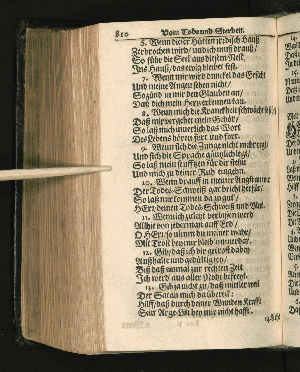 810 Vom Tod und Sterben.
6. Wenn dieser Hütten irdisch Hauß
Zerbrochen wird / und ich muß drauß /
So führ die Seel aus diesem Nest,
Ins Hauß, das ewig bleibet fest.
7. Wenn mir wird dunckel das Gesicht
Und meine Augen sehen nicht /
So zünd in mir den Glauben an /
Daß dich mein Hertz erkennen kan.
8. Wenn mich die Kranckheit schwächt
Daß mir vergehet mein Gehör /
So laß mich innerlich das Wort
Des Lebens hören fort und fort.
9. Wenn sich die Zunge nicht mehr regt
Und sich die Sprache gäntzlich legt /
So laß mein seufftzen für dir stehn
Und mich zu deiner Ruh eingehn.
10. Wenn drauff in meiner Angst
Der Todes-Schweiß gar bricht herfür /
So laß mir kommen da zu gut /
HErr / deinen Todes-Schweiß und Blut.
11. Wenn ich zuletzt verlassen werd
Allhie von jederman auff Erd /
O HErr / so nim du meiner wahr /
Mit Trost bey mir bleib immerdar.
12. Gib / daß ich dir getrost dabey
Außhalte und gedültig sey /
Biß daß einmal zur rechten Zeit
Ich werd aus aller Noht befreyt.
13. Gib ja nicht zu / daß mitler weil
Der Satan mich
Hilff / daß durch deiner Wunden Krafft
Sein Arge-List bey mir nicht hafft.